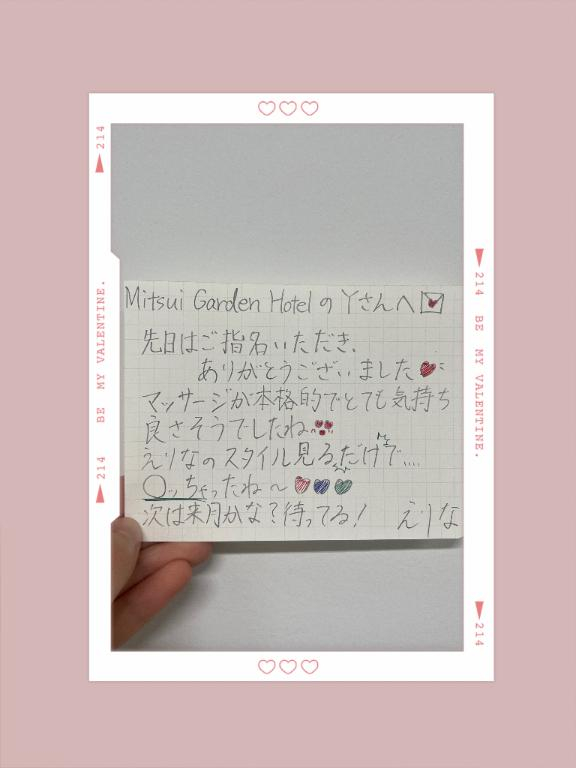 214
BE MY VALENTINE.
214
Mitsui Garden Hotel の Yさんへ
先日はご指名いただき、
ありがとうございました
マッサージが本格的でとても気持ち
良さそうでしたね
えりなのスタイル見るだけで....
〇ッちゃったね〜
次は来月かな?待ってる! えりな
214
BE MY VALENTINE.
214